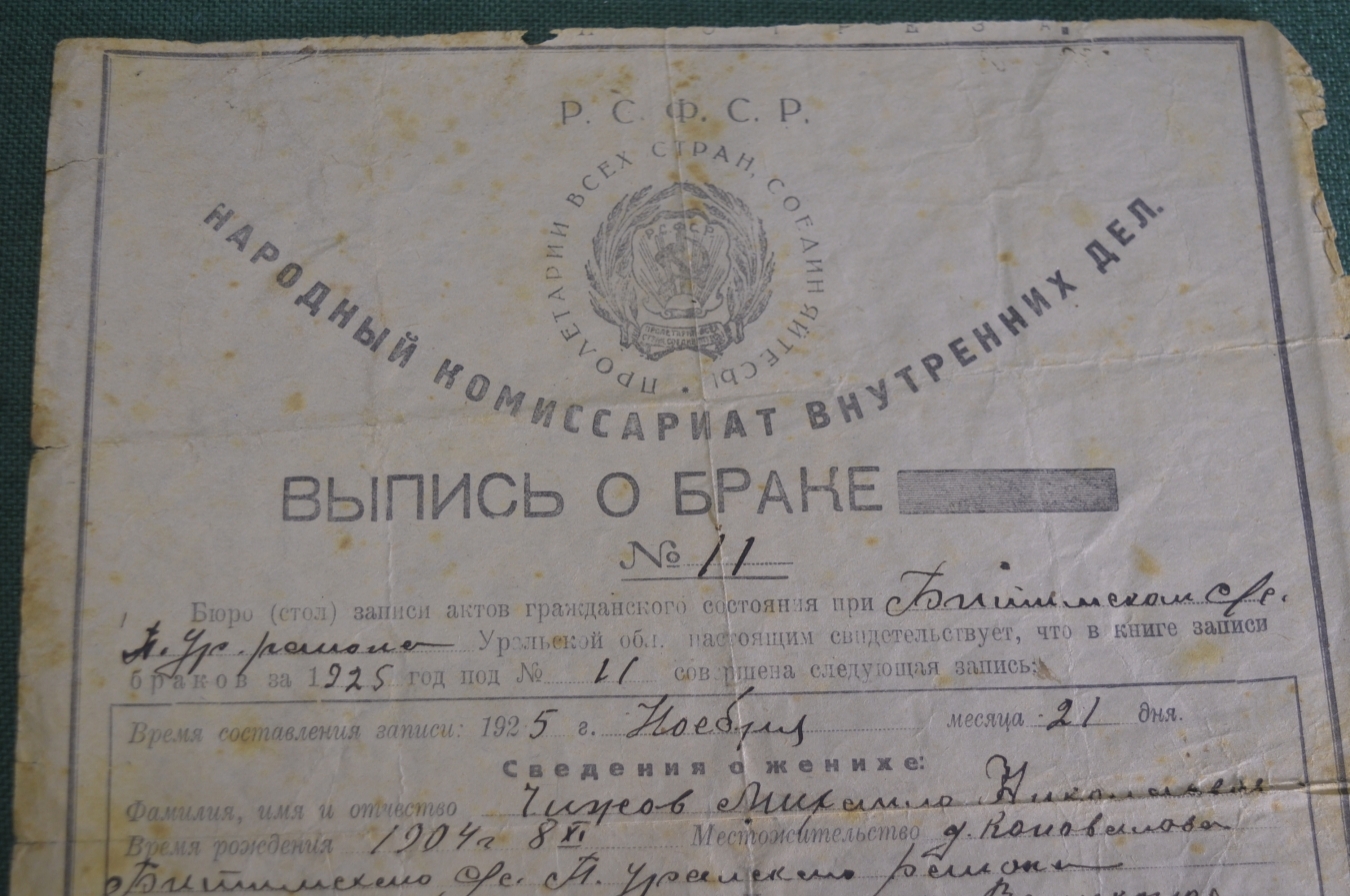 Р. С. Ф. С. Р.
ПРОЛЕТАРИИ ВСЕХ СТРАН, СОЕДИНЯЙТЕСЬ!
Р.С.Ф.С.Р.
НАРОДНЫЙ КОМИССАРИАТ ВНУТРЕННИХ ДЕЛ.
ВЫПИСЬ О БРАКЕ
№ 11
Бюро (стол) записи актов гражданского состояния при Битимском с/с.
П. Ур. района Уральской обл. настоящим свидетельствует, что в книге записи
браков за 1925 год под № 11 совершена следующая запись:
Время составления записи: 1925 г. Ноября месяца 21 дня.
Сведения о женихе:
Фамилия, имя и отчество Чижов Михаило Николаевич
Время рождения 1904 г 8 XI Местожительство д. Коновалова
Битимского с/с. П. Уральского района